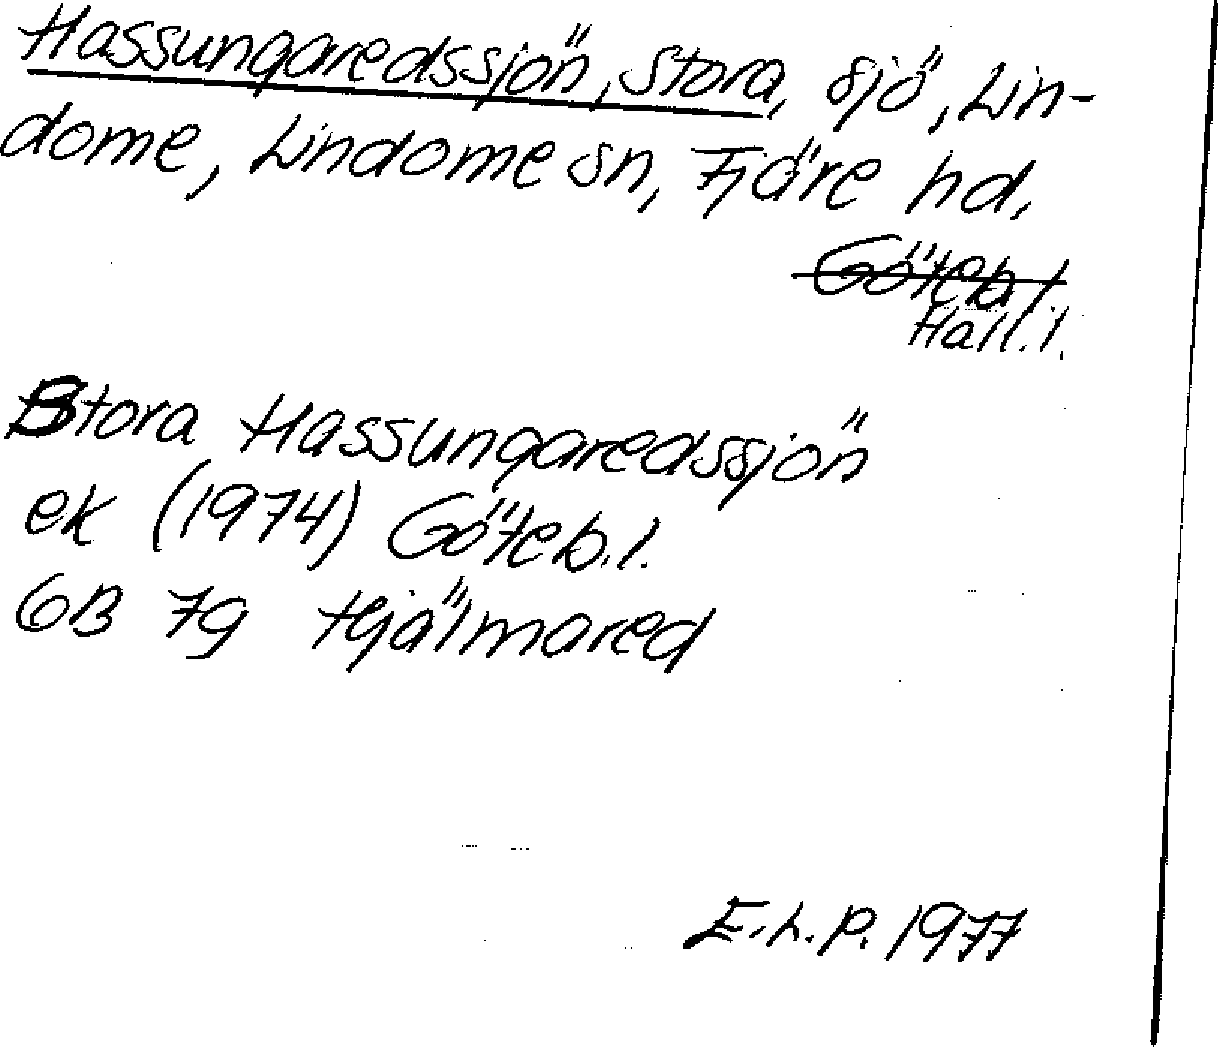 Hassungaredssjön, Stora, sjö, Lin-
dome, Lindome sn, Fjäre hd,
Göteb. l
Hall. l.
Stora Hassungaredssjön
ek (1974) Göteb. l.
6B 7g Hjälmared
E.L.P. 1977